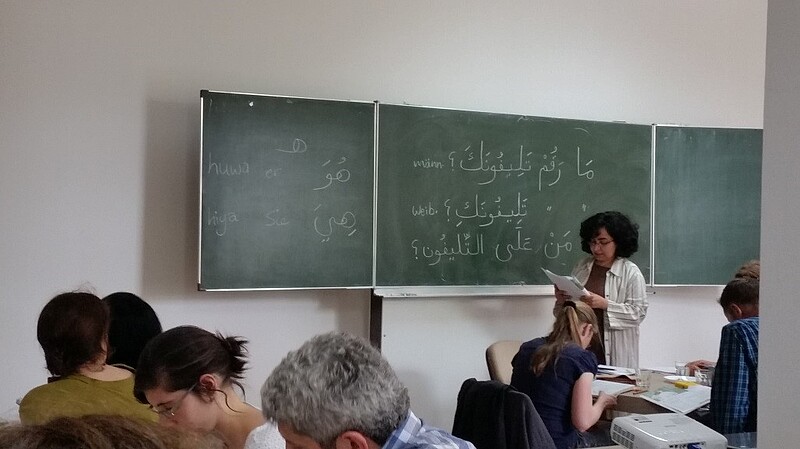 huwa er هُوَ
hiya sie هِيَ
männ. مَا رَقْمُ تَلِيفُونَكَ؟
weib. " " تَلِيفُونَكِ؟
مَنْ عَلَى التِّلِيفُون؟